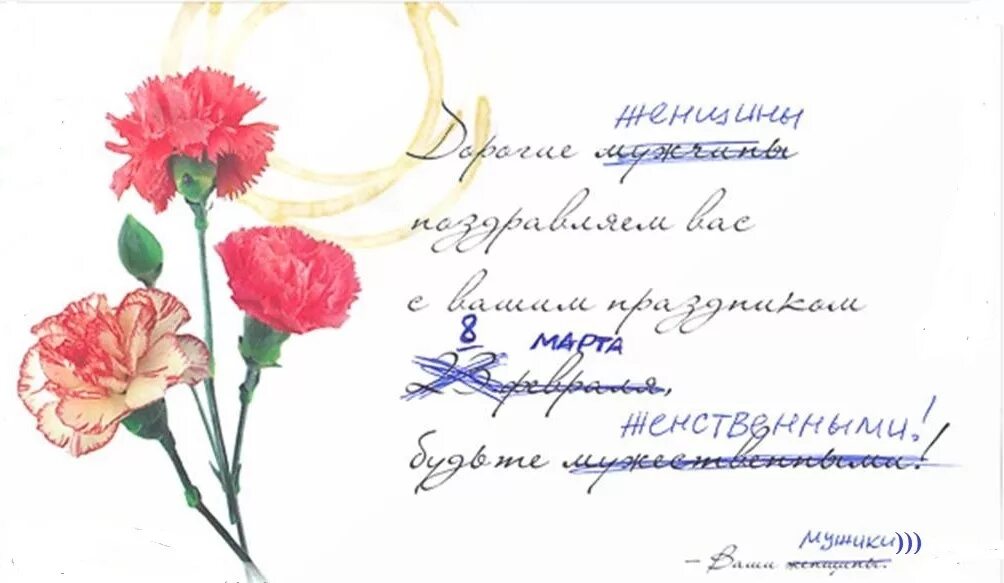 женщины
Дорогие мужчины
поздравляем вас
с вашим праздником
8 МАРТА
23 февраля,
женственными!
будьте мужественными!
мужики)))
– Ваши женщины.